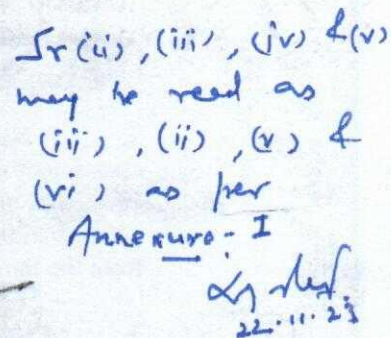 Sr (ii), (iii), (iv) & (v)
may be read as
(iii), (ii), (v) &
(vi) as per
Annexure - I
22.11.23